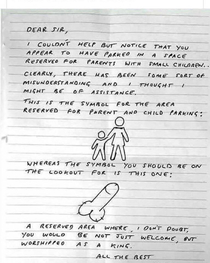 DEAR SIR,
I COULDN'T HELP BUT NOTICE THAT YOU
APPEAR TO HAVE PARKED IN A SPACE
RESERVED FOR PARENTS WITH SMALL CHILDREN.
CLEARLY, THERE HAS BEEN SOME SORT OF
MISUNDERSTANDING AND I THOUGHT I
MIGHT BE OF ASSISTANCE.
THIS IS THE SYMBOL FOR THE AREA
RESERVED FOR PARENT AND CHILD PARKING:
WHEREAS THE SYMBOL YOU SHOULD BE ON
THE LOOKOUT FOR IS THIS ONE:
A RESERVED AREA WHERE, I DON'T DOUBT,
YOU WOULD BE NOT JUST WELCOME, BUT
WORSHIPPED AS A KING.
ALL THE BEST